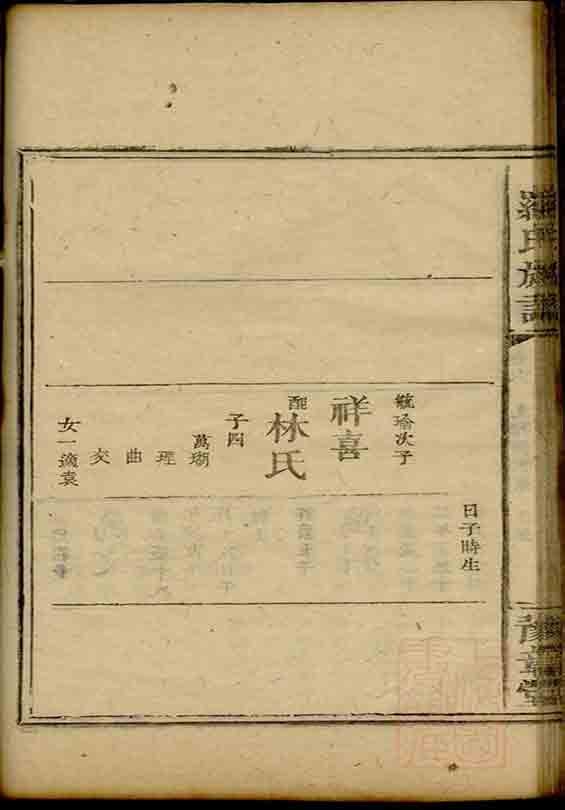 羅氏族譜
豫章堂
日子時生
毓瑜次子
祥喜
配
林氏
子四
萬瑚
理
曲
交
女一適袁